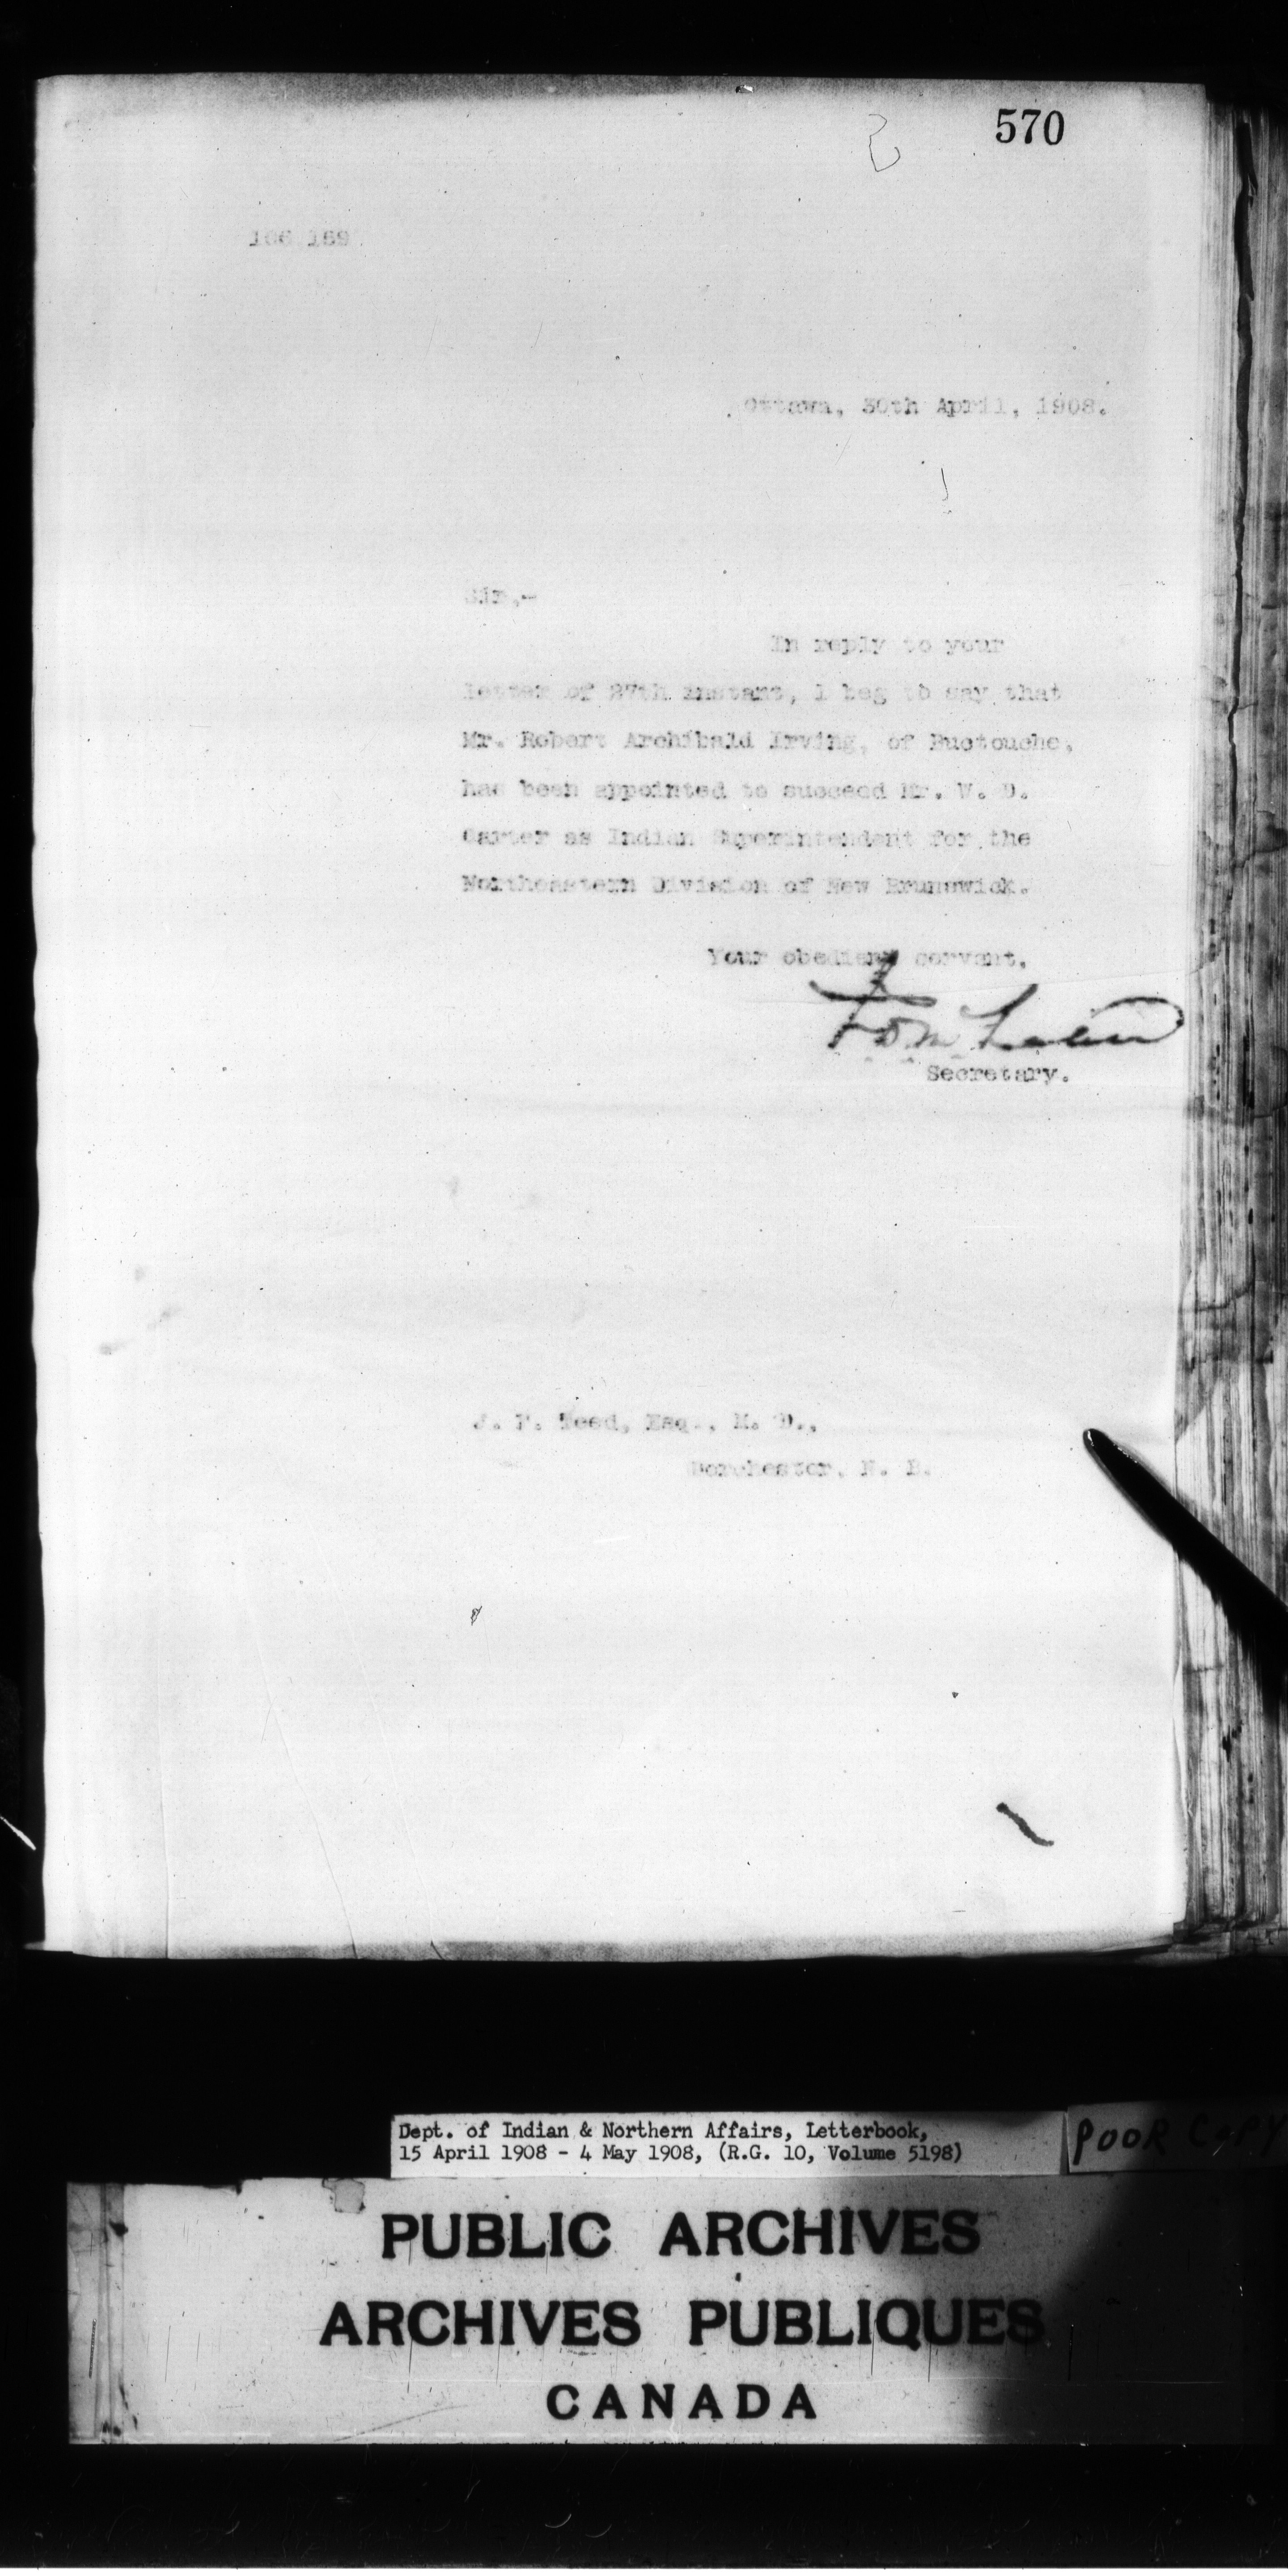 570
Ottawa, 30th April, 1908.
Sir,-
In reply to your
letter of 27th instant, I beg to say that
Mr. Robert Archibald Irving, of Buctouche,
has been appointed to succeed Mr. W. D.
Carter as Indian Superintendent for the
Northeastern Division of New Brunswick.
Your obedient servant,
Secretary.
J. F. Teed, Esq., M. D.,
Dorchester, N. B.
Dept. of Indian & Northern Affairs, Letterbook,
15 April 1908 - 4 May 1908, (R.G. 10, Volume 5198)
POOR COPY
PUBLIC ARCHIVES
ARCHIVES PUBLIQUES
CANADA